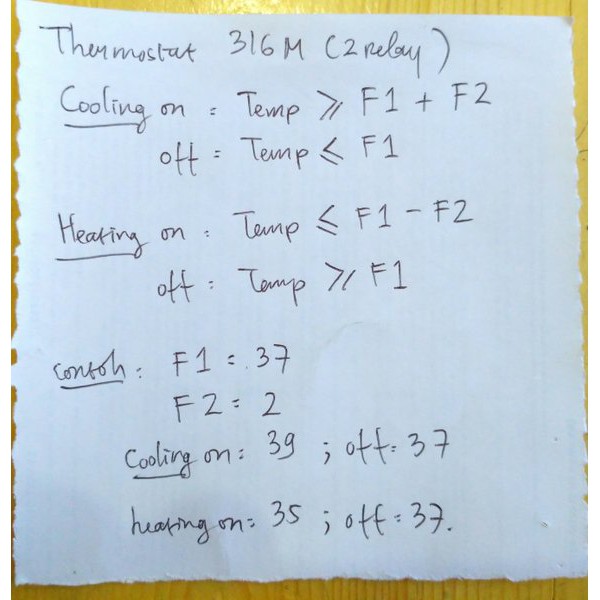 Thermostat 316M (2 relay)
Cooling on = Temp ⩾ F1 + F2
off = Temp ⩽ F1
Heating on = Temp ⩽ F1 - F2
off = Temp ⩾ F1
contoh : F1 = 37
F2 = 2
Cooling on = 39 ; off = 37
heating on = 35 ; off = 37.